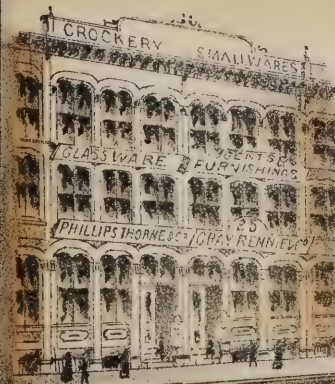 CROCKERY SMALLWARES
GLASSWARE GENTS
FURNISHINGS
25
PHILLIPS THORNE & Co GRAY RENNIE & Co